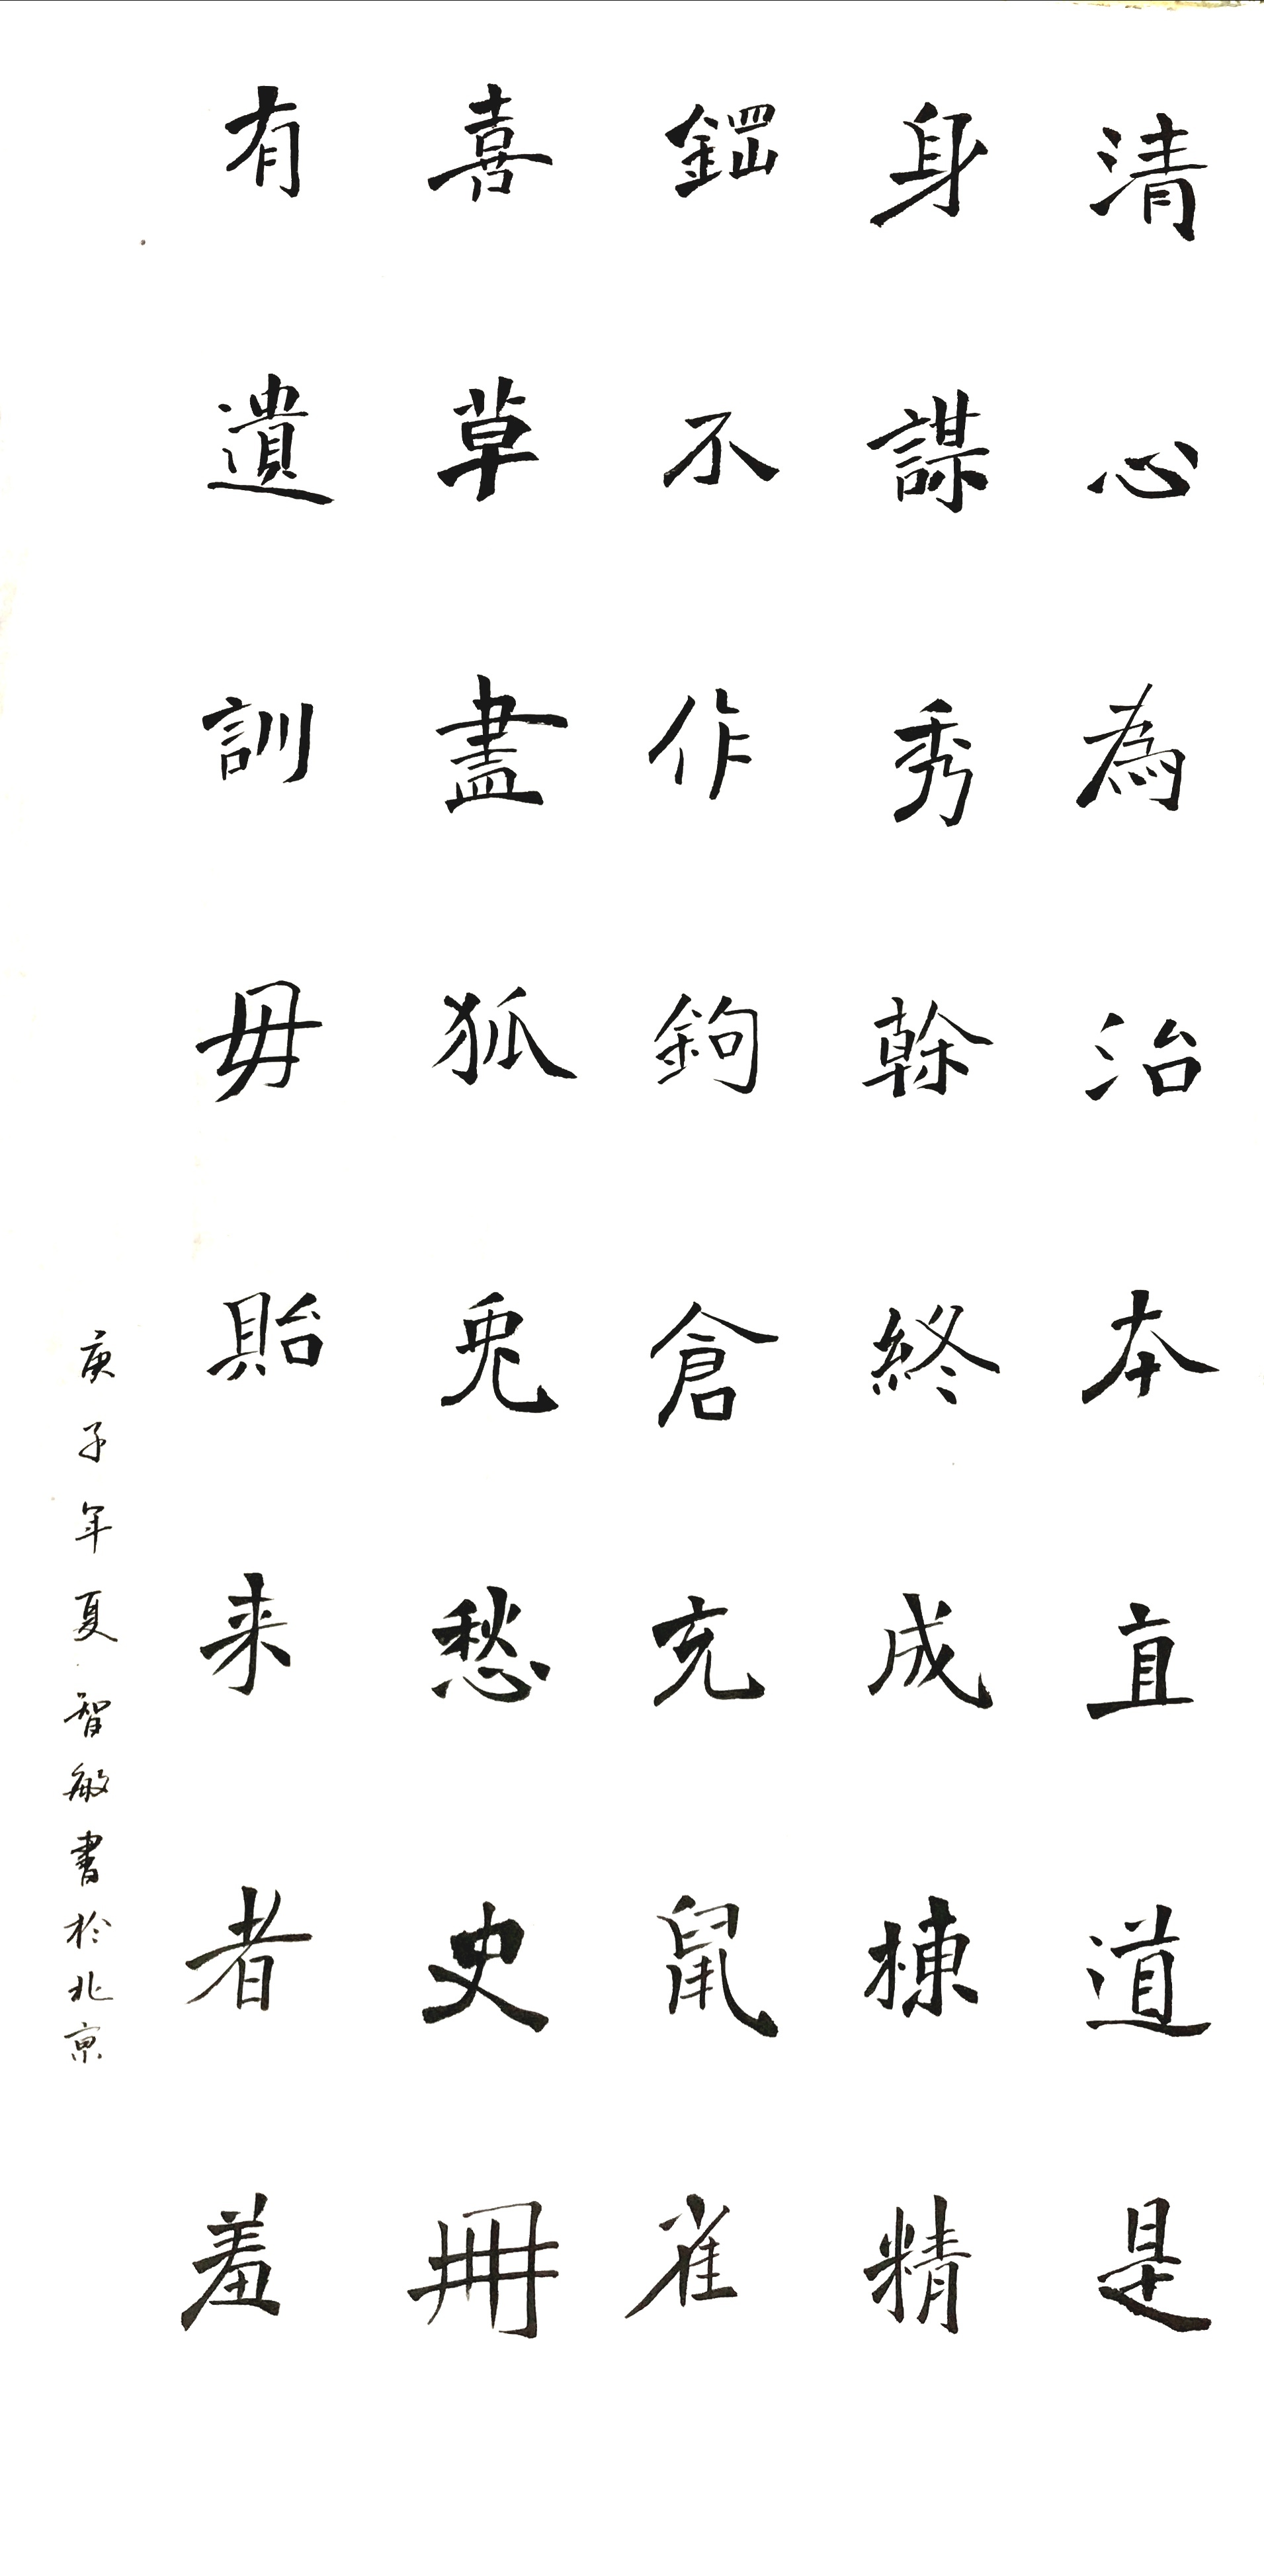 清心為治本直道是
身謀秀幹終成棟精
鋼不作鉤倉充鼠雀
喜草盡狐兎愁史冊
有遺訓毋貽来者羞
庚子年夏智敏書於北京